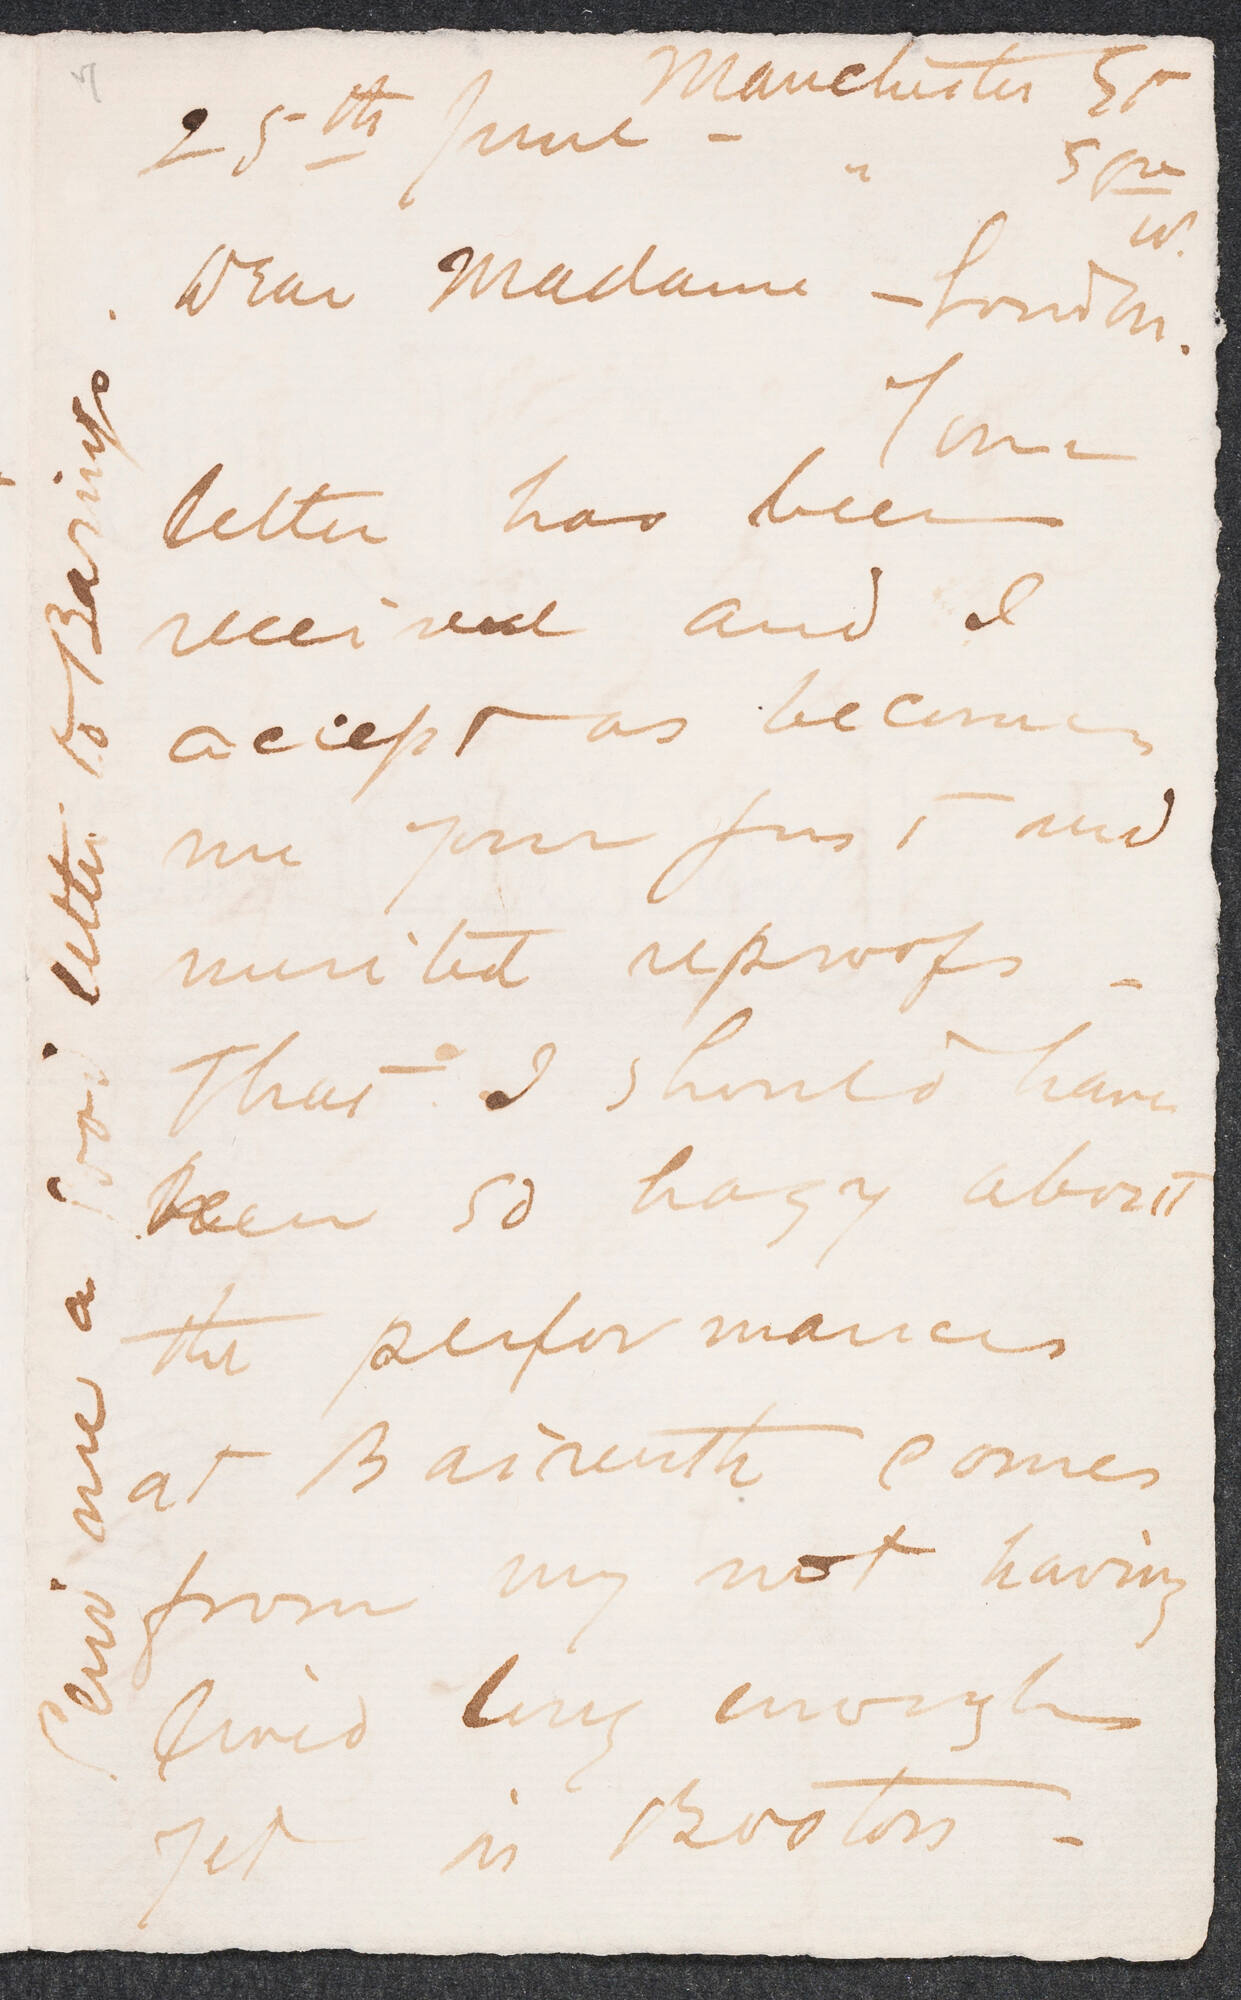 25th June - Manchester Sq
" Sqre
W.
Dear Madame - London.
Your
letter has been
received and I
accept as becomes
me your just and
merited reproofs -
That I should have
been so hazy about
the performances
at Baireuth comes
from my not having
lived long enough
yet in Boston -
Send me a good letter to Barings.